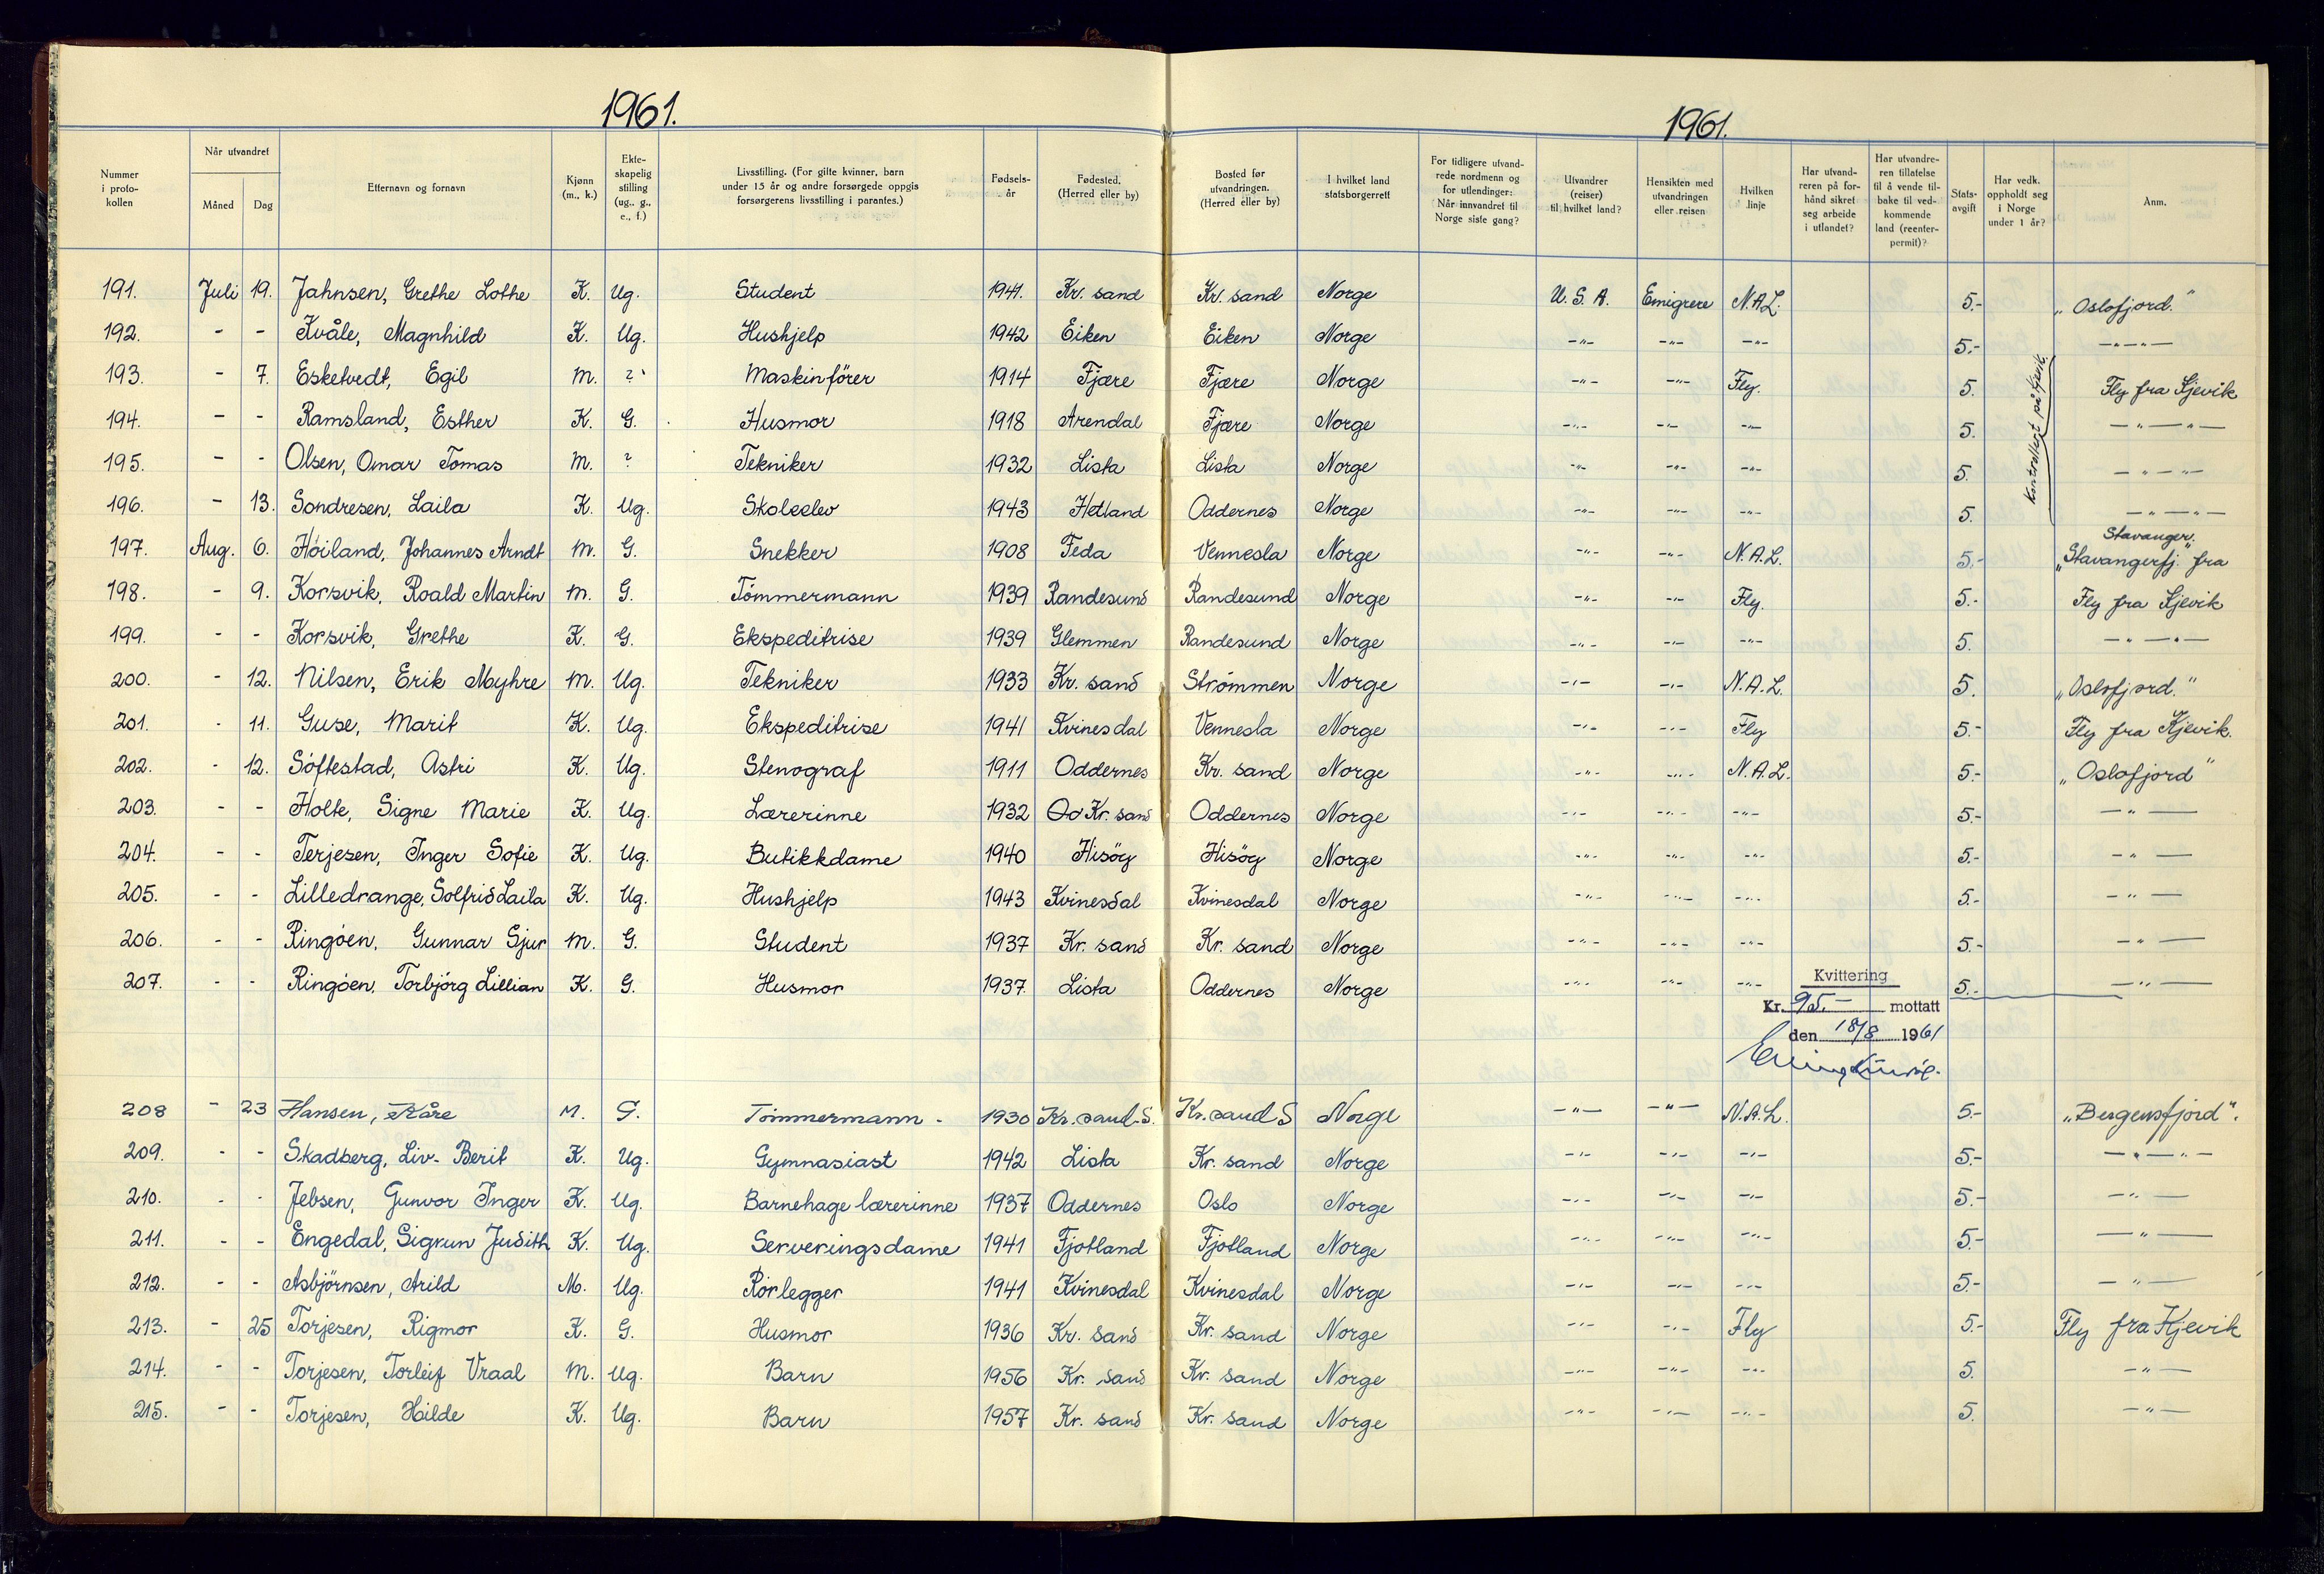 1961.
1961.
Nummer i protokollen | Når utvandret Måned Dag | Etternavn og fornavn | Kjønn (m., k.) | Ekteskapelig stilling (ug., g., e., f.) | Livsstilling. (For gifte kvinner, barn under 15 år og andre forsørgede oppgis forsørgerens livsstilling i parantes.) | Fødselsår | Fødested. (Herred eller by) | Bosted før utvandringen. (Herred eller by) | I hvilket land statsborgerrett | For tidligere utvandrede nordmenn og for utlendinger: Når innvandret til Norge siste gang? | Utvandrer (reiser) til hvilket land? | Hensikten med utvandringen eller reisen | Hvilken linje | Har utvandreren på forhånd sikret seg arbeide i utlandet? | Har utvandreren tillatelse til å vende tilbake til vedkommende land (reenterpermit)? | Statsavgift | Har vedk. oppholdt seg i Norge under 1 år? | Anm.
191. Juli 19. Jahnsen, Grethe Lothe K. Ug. Student 1941. Kr. sand Kr. sand Norge U.S.A. Emigrere N.A.L. 5.- „Oslofjord."
192. - - Kvåle, Magnhild K. Ug. Hushjelp 1942 Eiken Eiken Norge -"- -"- -"- 5.- -"-"-
193. - 7. Esketvedt, Egil M. ? Maskinfører 1914 Fjære Fjære Norge -"- -"- Fly. 5. Fly fra Kjevik
194. - - Ramsland, Esther K. G. Husmor 1918 Arendal Fjære Norge -"- -"- -"- 5. -"-"-
195. - - Olsen, Omar Tomas M. ? Tekniker 1932 Lista Lista Norge -"- -"- -"- 5. -"-"-
196. - 13. Sondresen, Laila K. Ug. Skoleelev 1943 Hetland Oddernes Norge -"- -"- -"- 5. -"-"-
Kontrollert på Kjevik.
197. Aug. 6. Høiland, Johannes Arndt M. G. Snekker 1908 Feda Vennesla Norge -"- -"- N.A.L. 5.- „Stavangerfj." fra Stavanger.
198. - 9. Korsvik, Roald Martin M. G. Tömmermann 1939 Randesund Randesund Norge -"- -"- Fly. 5.- Fly fra Kjevik
199. - - Korsvik, Grethe K. G. Ekspeditrise 1939 Glemmen Randesund Norge -"- -"- -"- 5. -"-"-
200. - 12. Nilsen, Erik Myhre M. Ug. Tekniker 1933 Kr. sand Strømmen Norge -"- -"- N.A.L. 5. „Oslofjord."
201. - 11. Guse, Marit K. Ug. Ekspeditrise 1941 Kvinesdal Vennesla Norge -"- -"- Fly 5.- Fly fra Kjevik.
202. - 12. Söftestad, Astri K. Ug. Stenograf 1911 Oddernes Kr. sand Norge -"- -"- N.A.L. 5.- „Oslofjord"
203. - - Holte, Signe Marie K. Ug. Lærerinne 1932 Od Kr. sand Oddernes Norge -"- -"- -"- 5.- -"-
204. - - Terjesen, Inger Sofie K. Ug. Butikkdame 1940 Hisöy Hisöy Norge -"- -"- -"- 5.- -"-
205. - - Lilledrange, Solfrid Laila K. Ug. Hushjelp 1943 Kvinesdal Kvinesdal Norge -"- -"- -"- 5.- -"-
206. - - Ringöen, Gunnar Sjur M. G. Student 1937 Kr. sand Kr. sand Norge -"- -"- -"- 5.- -"-
207. - - Ringöen, Torbjörg Lillian K. G. Husmor 1937 Lista Oddernes Norge -"- -"- -"- 5.- -"-
Kvittering
Kr. 95.- mottatt
den 18/8 1961
208 - 23 Hansen, Kåre M. G. Tömmermann - 1930 Kr. sand. S. Kr. sand S Norge -"- -"- N.A.L. 5.- „Bergensfjord".
209. - - Skadberg, Liv-Berit K. Ug. Gymnasiast 1942 Lista Kr. sand Norge -"- -"- -"- 5.- -"-"-
210. - - Jebsen, Gunvor Inger K. Ug. Barnehage lærerinne 1937 Oddernes Oslo Norge -"- -"- -"- 5.- -"-
211. - - Engedal, Sigrun Judith K. Ug. Serveringsdame 1941 Fjotland Fjotland Norge -"- -"- -"- 5.- -"-
212. - - Asbjörnsen, Arild M. Ug. Rörlegger 1941 Kvinesdal Kvinesdal Norge -"- -"- -"- 5.- -"-
213. - 25 Torjesen, Rigmor K. G. Husmor 1936 Kr. sand Kr. sand Norge -"- -"- Fly 5.- Fly fra Kjevik
214. - - Torjesen, Torleif Vraal M. Ug. Barn 1956 Kr. sand Kr. sand Norge -"- -"- -"- 5. -"-
215. - - Torjesen, Hilde K. Ug. Barn 1957 Kr. sand Kr. sand Norge -"- -"- -"- 5. -"-